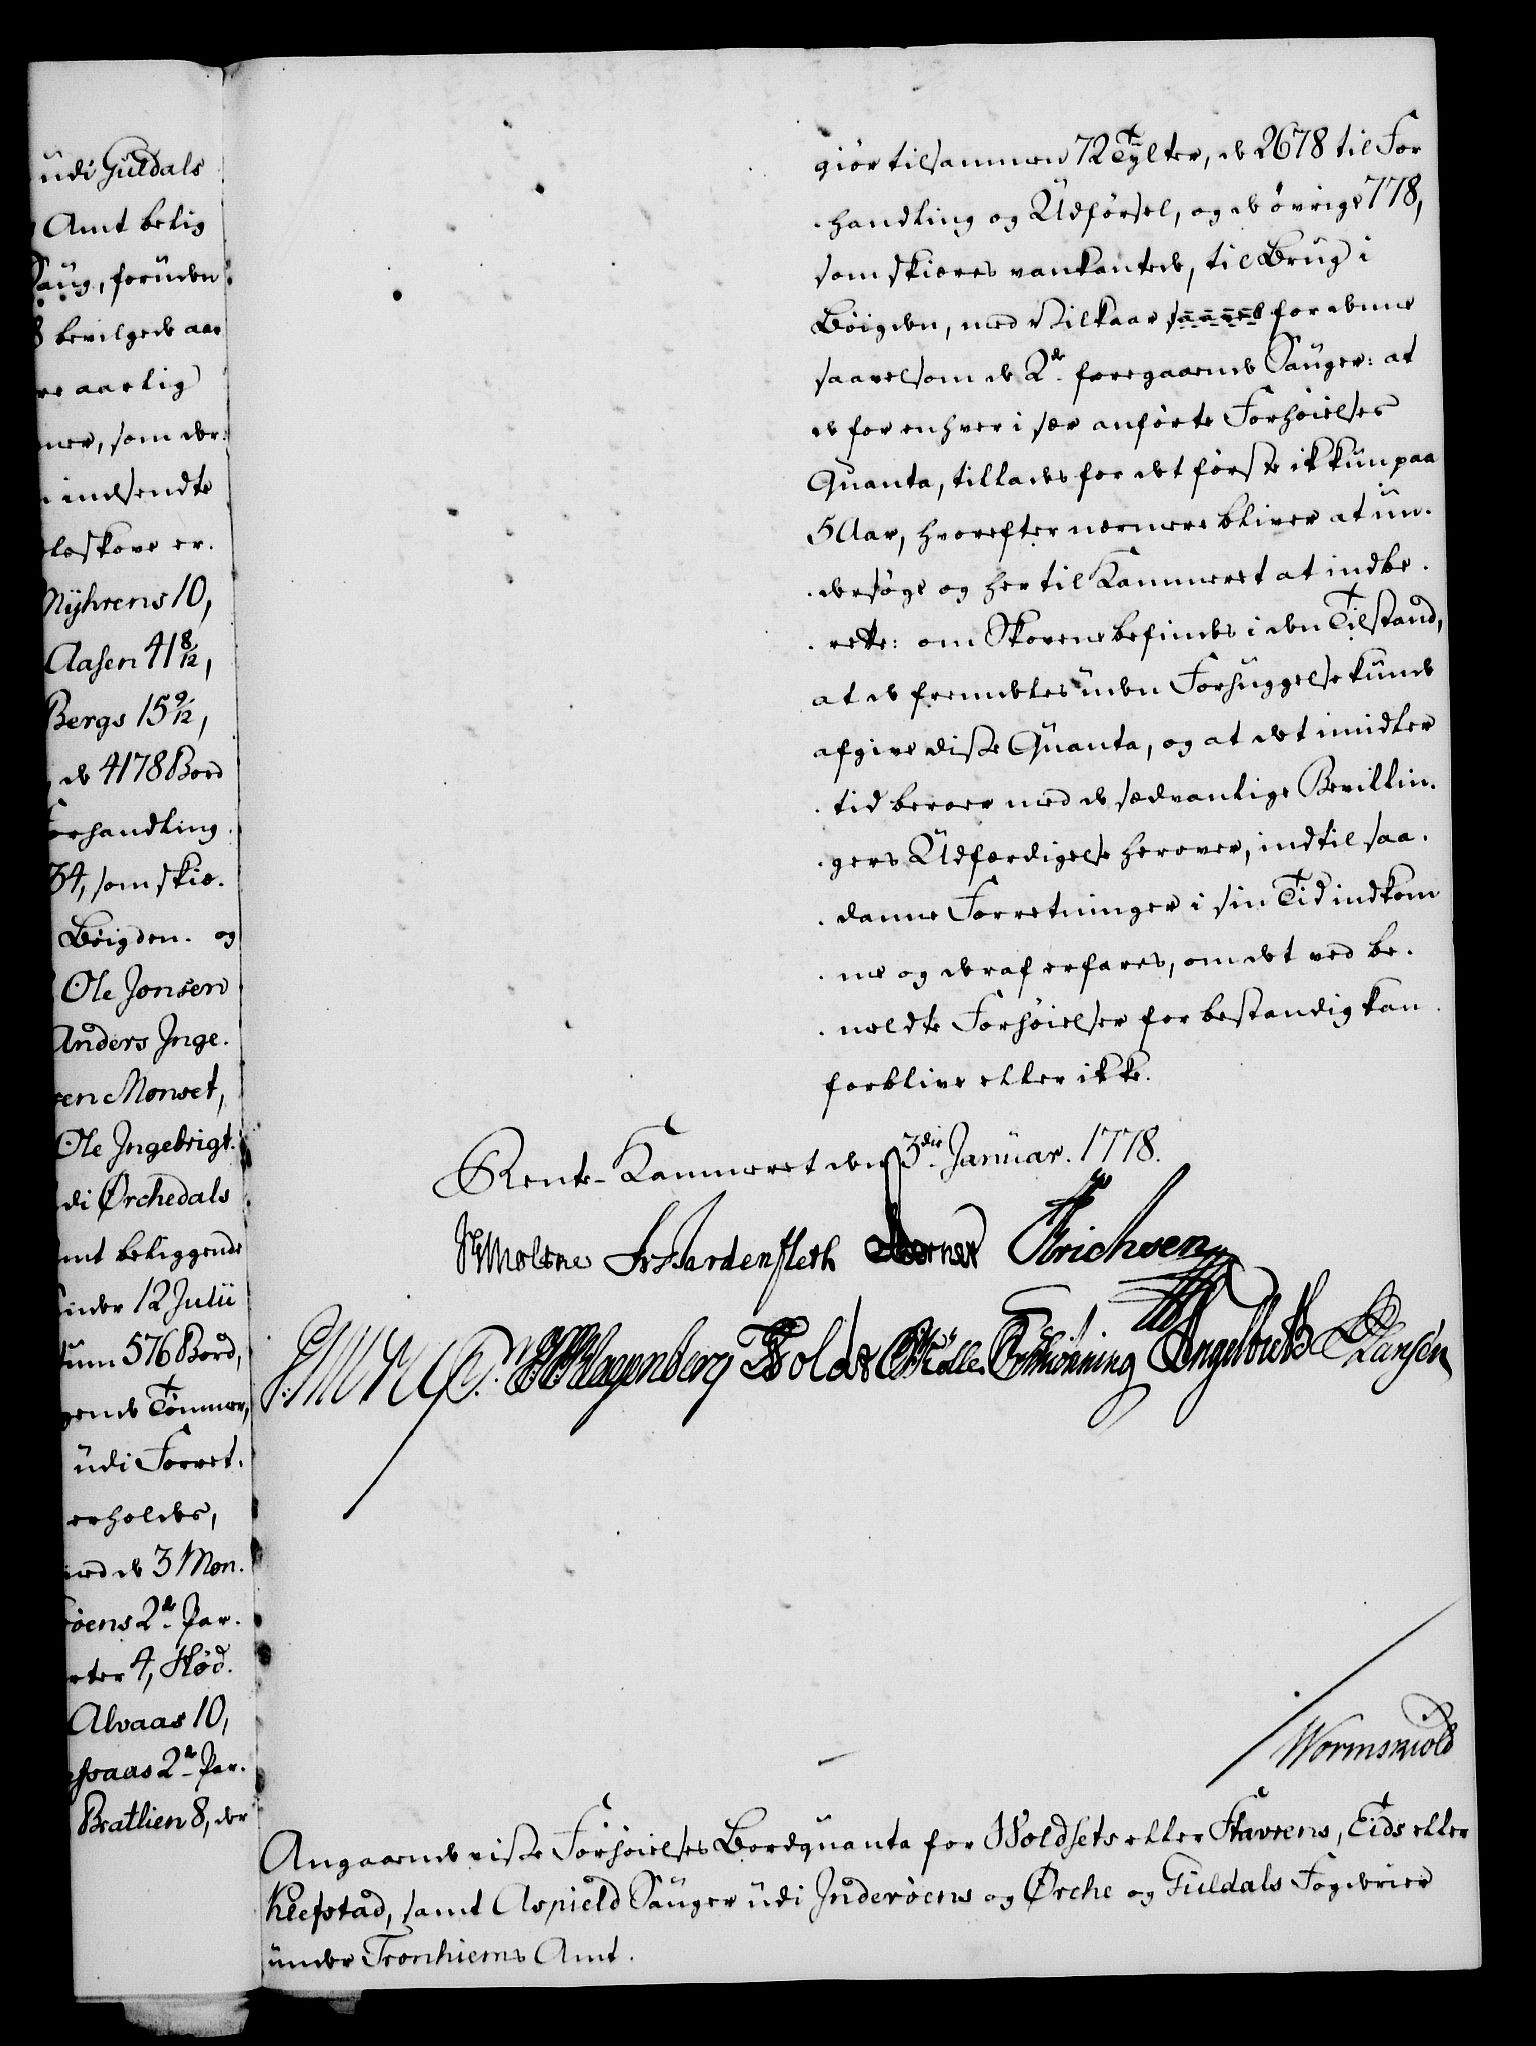 udi Guldals
Amt belig
Saug, foruden
8 bevilgede aar
re aarlig
ner, som der:
indsendte
loskove er.
Nyhrens 10,
Aasen 41 8/12,
Bergs 15 9/12,
de 4178 Bord
Forhandling.
34, som skiæ.
Böigden. og
Ole Jonsen
Anders Inge.
sen Monset,
Ole Ingebrigt.
di Ørchedals
Amt beliggende
under 12 Julii
tum 576 Bord,
gende Tömmer,
udi Forret.
erholdes,
ved de 3 Mon.
öens 2de Par.
rter 4, Höd.
Alvaas 10,
2de Par.
Bratlien 8, der
giör tilsammen 72 Tylter, de 2678 til For
handling og Udförsel, og de övrige 778,
som skiæres vankantede, til Brug i
Böigden, med Vilkaar saavel for denne
saavelsom de 2de foregaaende Sauger: at
de for enhver i sær anförte Forhöielses
Quanta, tillades for det förste ikkun paa
5 Aar, hvorefter nærmere bliver at un.
dersöge og her til Kammeret at indbe.
rette: om Skovene befindes i den Tilstand,
at de fremdeles uden Forhuggelse kunde
afgive disse Quanta, og at det imidler
tid beroer med de sædvanlige Bevillin.
gers Udfærdigelse herover, indtil saa.
danne Forretninger i sin Tid indkom
me og deraf erfares, om det ved be.
meldte Forhöielser for bestandig kan
forblive eller ikke.
Rente-Kammeret den 3die Januar. 1778.
Moltke Hardenfleth Berner Erichsen
Klagenberg Holder Möller Schiönning Engelbreth Hansen
Wormskiold
Angaaende visse Forhöielses Bordquanta for Woldsets eller Stavrens, Eids eller
Kleefstad, samt Aspield Sauger udi Inderöens og Ørche og Guldals Fogderier
under Tronhiems Amt.